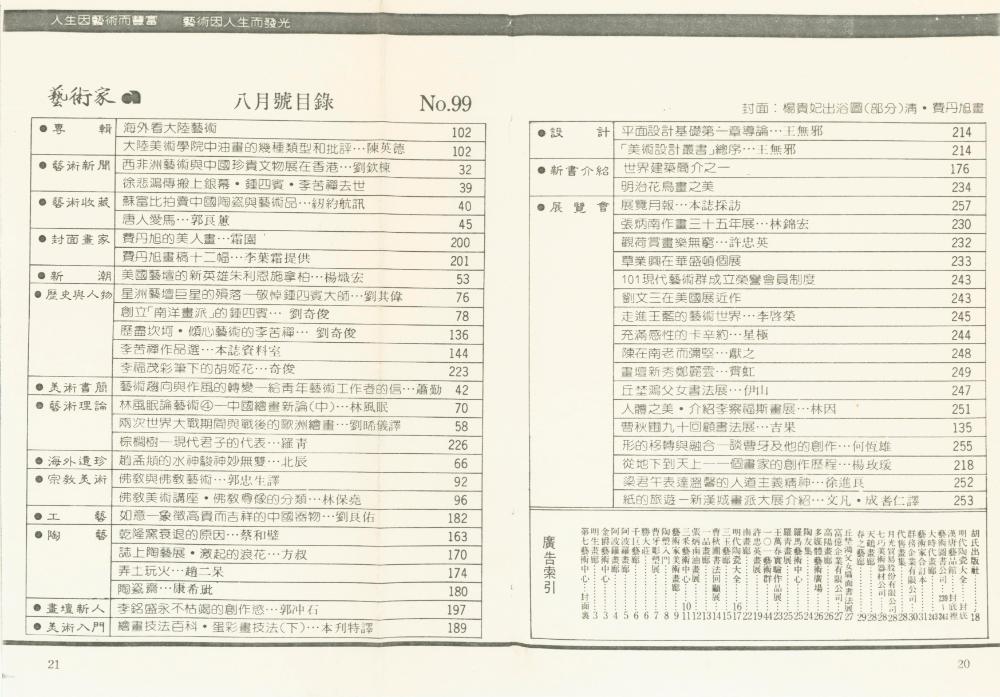 人生因藝術而豐富　藝術因人生而發光
藝術家
八月號目錄
No.99
封面：楊貴妃出浴圖(部分)清・費丹旭畫
●專輯 海外看大陸藝術 102
大陸美術學院中油畫的幾種類型和批評…陳英德 102
●藝術新聞 西非洲藝術與中國珍貴文物展在香港…劉欽棟 32
徐悲鴻傳搬上銀幕・鍾四賓・李苦禪去世 39
●藝術收藏 蘇富比拍賣中國陶瓷與藝術品…紐約航訊 40
唐人愛馬…郭良蕙 45
●封面畫家 費丹旭的美人畫…霜園 200
費丹旭畫稿十二幅…李葉霜提供 201
●新潮 美國藝壇的新英雄朱利恩施拿柏…楊熾宏 53
●歷史與人物 星洲藝壇巨星的殞落—敬悼鍾四賓大師…劉其偉 76
創立「南洋畫派」的鍾四賓…劉奇俊 78
歷盡坎坷・傾心藝術的李苦禪…劉奇俊 136
李苦禪作品選…本誌資料室 144
李福茂彩筆下的胡姬花…奇俊 223
●美術書簡 藝術趨向與作風的轉變—給青年藝術工作者的信…蕭勤 42
●藝術理論 林風眠論藝術④—中國繪畫新論(中)…林風眠 70
兩次世界大戰期間與戰後的歐洲繪畫…劉晞儀譯 58
棕櫚樹—現代君子的代表…羅青 226
●海外遺珍 趙孟頫的水神駿神妙無雙…北辰 66
●宗教美術 佛教與佛教藝術…郭忠生譯 92
佛教美術講座・佛教尊像的分類…林保堯 96
●工藝 如意—象徵高貴而吉祥的中國器物…劉良佑 182
●陶藝 乾隆窯衰退的原因…蔡和壁 163
誌上陶藝展・激起的浪花…方叔 170
弄土玩火…趙二呆 174
陶瓷齋…康希玼 180
●畫壇新人 李銘盛永不枯竭的創作慾…郭冲石 197
●美術入門 繪畫技法百科・蛋彩畫技法(下)…本刊特譯 189
●設計 平面設計基礎第一章導論…王無邪 214
「美術設計叢書」總序…王無邪 214
●新書介紹 世界建築簡介之一 176
明治花鳥畫之美 234
●展覽會 展覽月報…本誌採訪 257
張炳南作畫三十五年展…林錦宏 230
觀荷賞畫樂無窮…許忠英 232
草業興在華盛頓個展 233
101現代藝術群成立榮譽會員制度 243
劉文三在美國展近作 243
走進王藍的藝術世界…李啓榮 245
充滿感性的卡辛約…星極 244
陳在南老而彌堅…獻之 248
畫壇新秀鄭麗雲…齊虹 249
丘埜鴻父女書法展…伊山 247
人體之美・介紹李察福斯畫展…林因 251
曹秋圃九十回顧書法展…吉果 135
形的移轉與融合—談曹牙及他的創作…何恆雄 255
從地下到天上—一個畫家的創作歷程…楊玫瑗 218
梁君午表達溫馨的人道主義精神…徐進良 252
紙的旅遊—新漢城畫派大展介紹…文凡・成耆仁譯 253
廣告索引
胡氏出版社…18
明代陶瓷大全…封底
漢唐藝品館…封底裡
藝術圖書公司…239～241
大時代畫廊…243
藝術家合訂本…31
群務企業有限公司…30
代售畫集…28
月光貿易股份有限公司…28
七七美術器材公司…28
天鶴畫廊…28
春之藝廊…29
富億企業有限公司…27
高嶺畫廊…26
多媒體藝術廣場…26
陶友集…24
羅馬藝術中心…25
羅青畫展…25
一〇一藝術群…22
許忠英畫展…19
明代陶瓷大全…16
三石藝廊…15
曹秋圃書法回顧展…14
一品畫廊…13
張炳南油畫展…12
三采藝術中心…11
藝術家美術畫廊…10
陶塑入門…9
曹牙雕塑展…8
藝术莊…7
千巨藝廊…6
阿波羅畫廊…5
金爵藝術中心…3
明生畫廊…3
第七藝術中心…封面裏
21
20